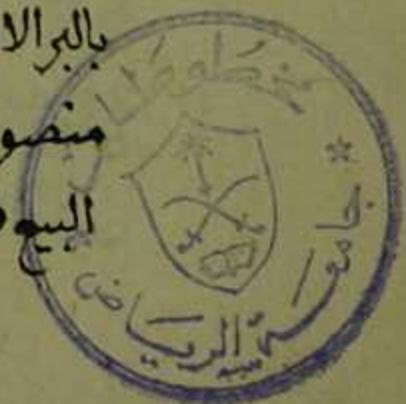 بالبرالا
منصو
البيع
مخطوطات
جامعة الرياض